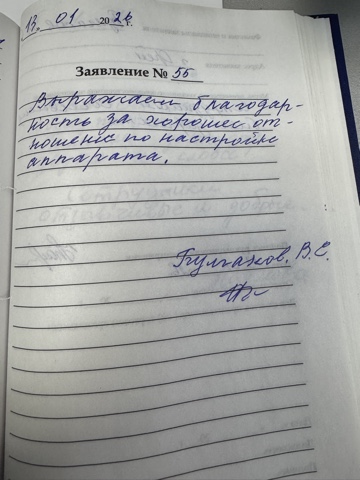 13. 01 2026 г.
Заявление № 55
Выражаем благодар-
ность за хорошее от-
ношение по настройке
аппарата.
Булгаков. В.Е.